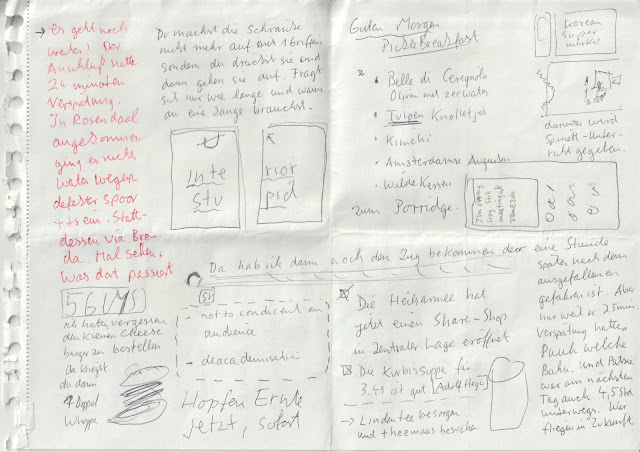 → es geht noch
weiter! Der
Anschluß hatte
24 minuten
Verspätung.
In Rosendaal
angekommen
ging es nicht
weiter wegen
defecter Spoor
+ trein. Statt-
dessen via Bre-
da. Mal sehen
was dort passiert
Du machst die Schränke
nicht mehr auf mit Griffen
sondern du drückst sie und
dann gehen sie auf. Fragt
sich nur wie lange und wann
du eine Zange brauchst.
inte
stu
rior
pid
Guten Morgen
Pickle Breakfast
Bella di Cerignola
Oliven met zeewater
Tulpen Knolletjes
Kimchi
Amsterdamse Augurken
Wilde Kersen
zum Porridge.
korean
super
market
darunter wird
Spinett-Unter-
richt gegeben.
Da hab ich dann noch den Zug bekommen der eine Stunde
später nach dem
ausgefallenen
gefahren ist. Aber
nur weil er 25 min.
Verspätung hatte.
Puuh welche
Bahn. Und Patrice
war am nächsten
Tag auch 4,5 Std
unterwegs. Wir
fliegen in Zukunft.
ich hatte vergessen
den kleinen Cheese
burger zu bestellen
da kriegst
du dann
4 Doppel
Whopper
not to condiment an
audience
deacademisation
Hopfen Ernte
jetzt, sofort
Die Heilsarmee hat
jetzt einen Share-Shop
in zentraler Lage eröffnet
Die Kürbissuppe für
3.49 ist gut
→ Lindentee besorgen
und theemaas besuchen